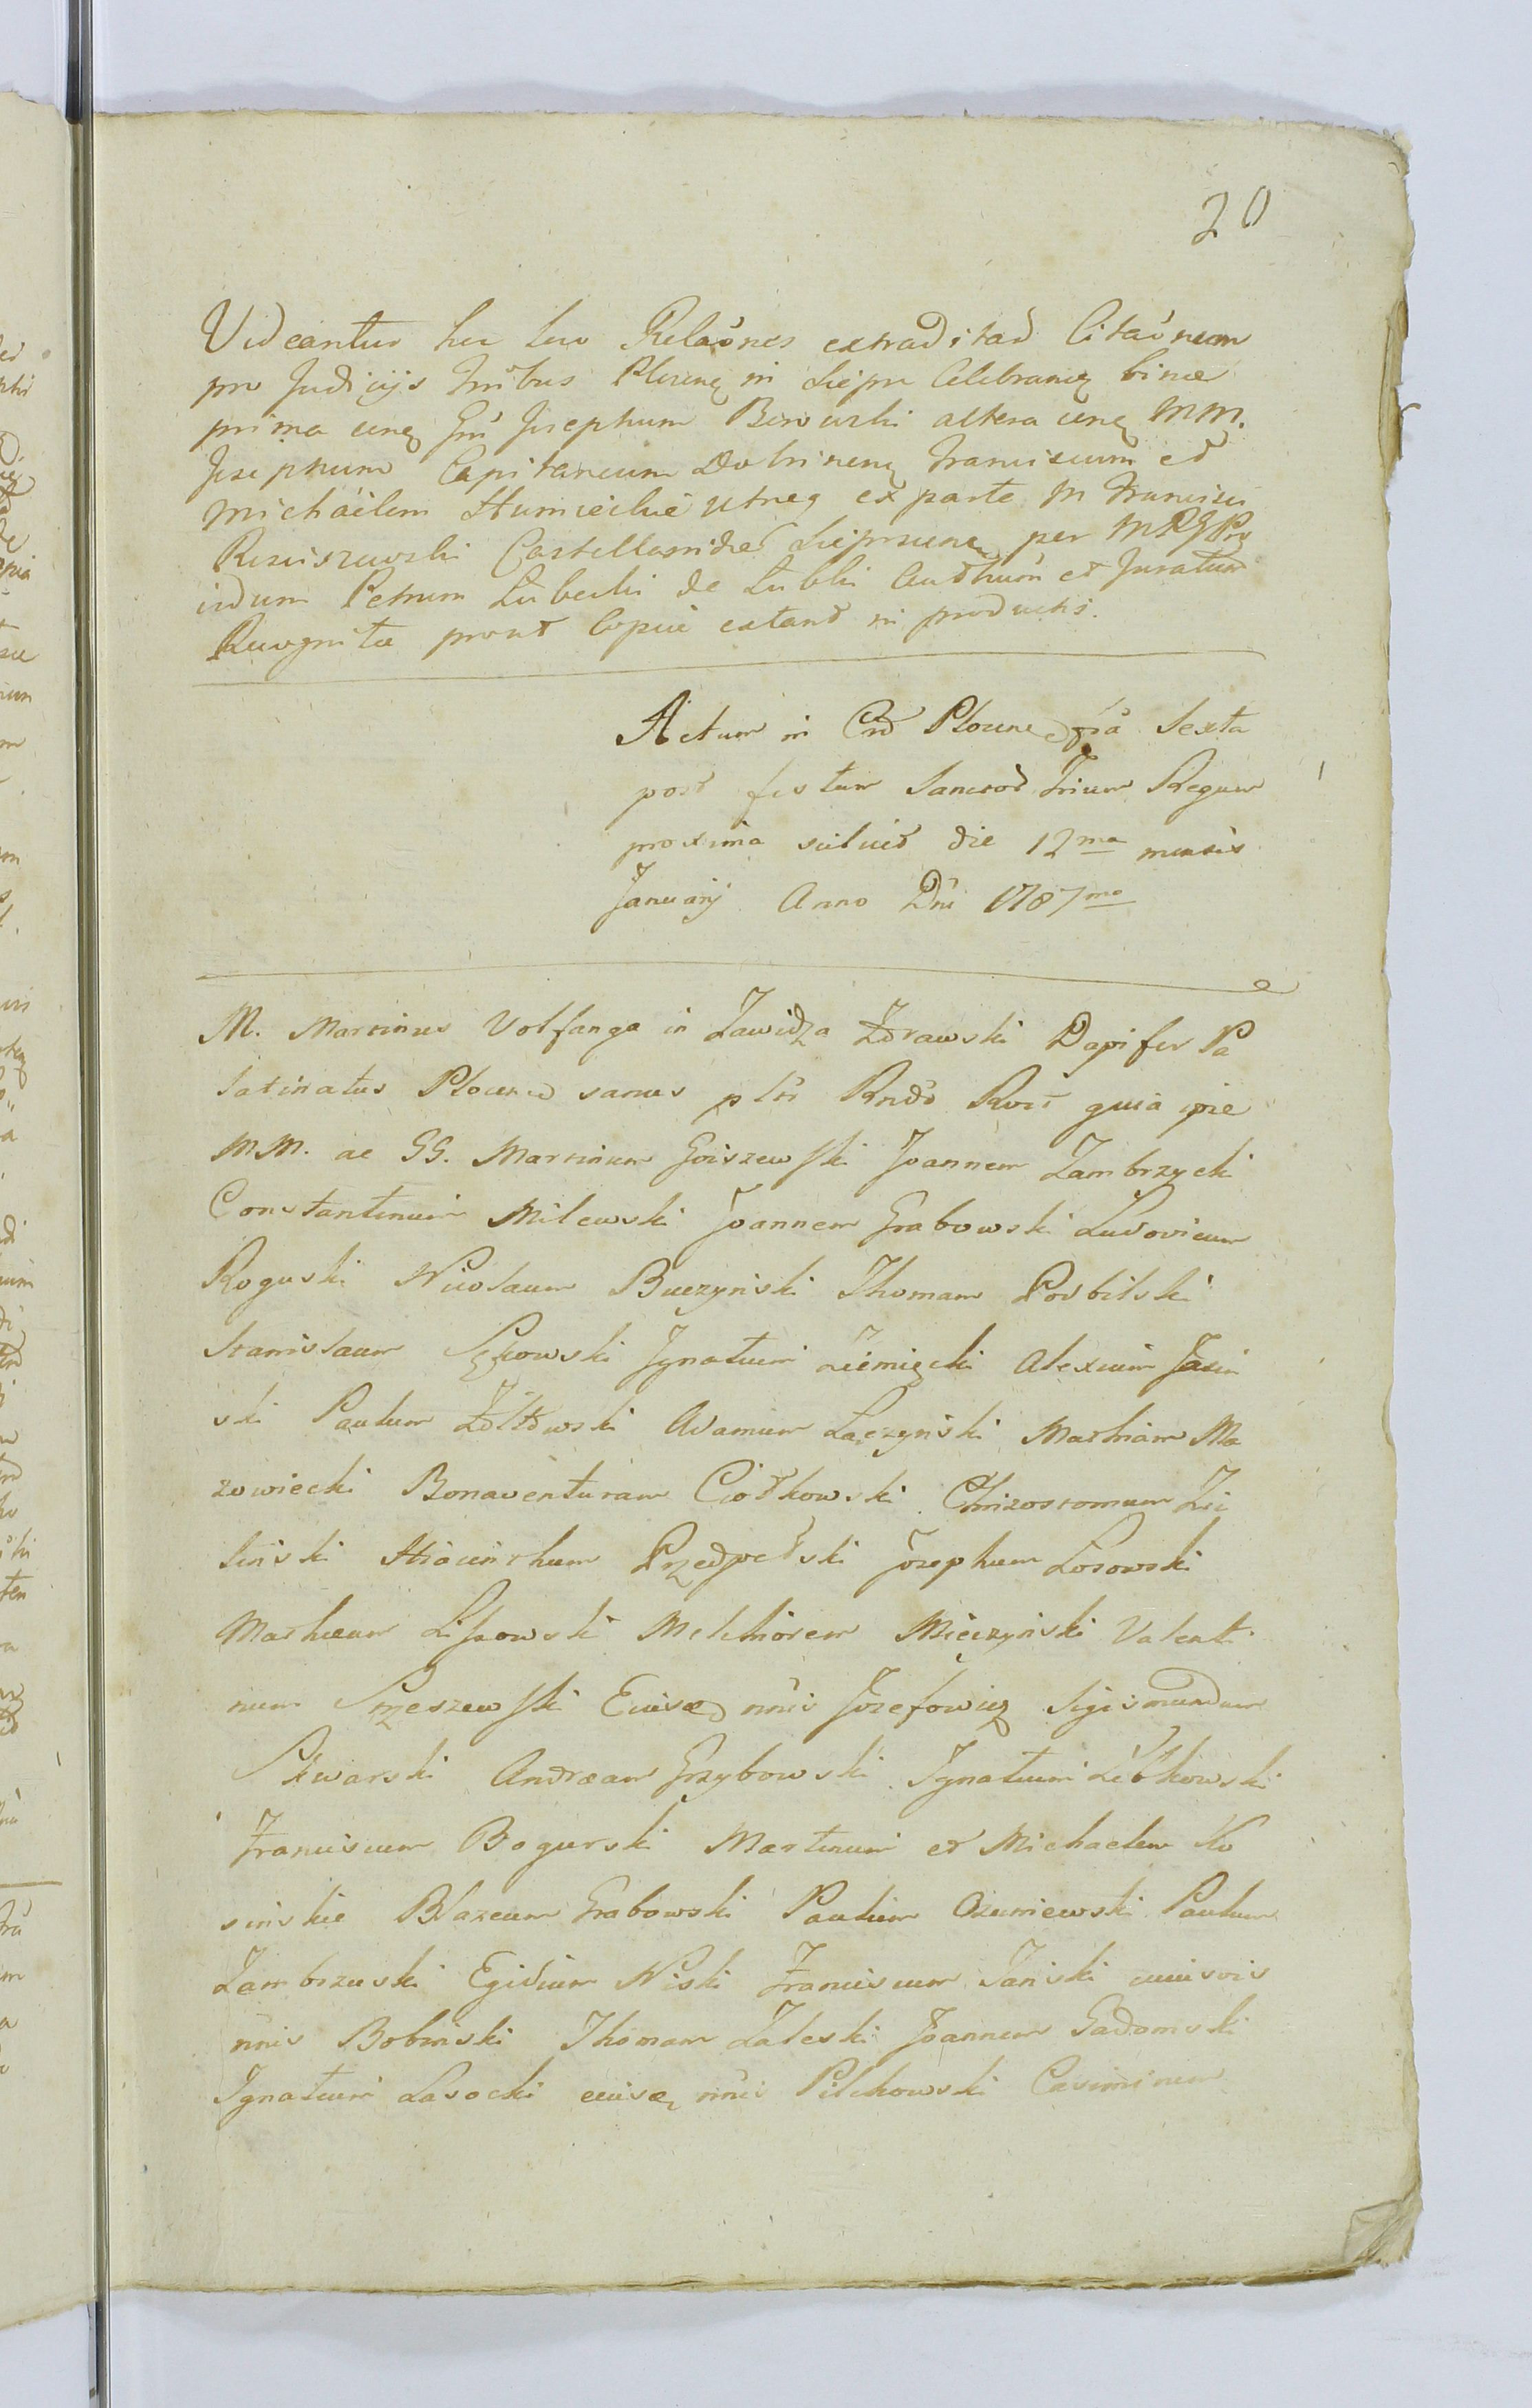 20
Videantur hic loco Relaónes extraditad Citaónum
pro Judicijs Trrbus Plocen in Siepr Celebran binæ
prima cen Gñ Josephum Borowski altera cen MM.
Josephum Capitaneum Dobrinen Franciscum et
Michaëlem Humieckie utraq ex parte M Francisci
Rosciszewski Castellanidæ Sieprcen per MRGPro
vidum Petrum Lubecki de Lubki Authum et Juratum
Recognita prout Copiæ extant in productis.
Actum in Crd Plocen fria Sexta
post festum Sanctor Trium Regum
proxima scilicet die 12ma mensis
Januarij Anno Dni 1787mo
M. Martinus Volfanga in Zawidza Zdrawski Dapifer Pa
latinatus Plocens sanus plr Rndo Rvit quia ipse
MM. ac GG. Martinum Goiszewski Joannem Zambrzycki
Constantinum Milewski Joannem Grabowski Ludovicum
Roguski Nicolaum Buczyński Thomam Podbilski
Stanislaum Sękowski Ignatium Ziemięcki Alexium Jasin
ski Paulum Żółtowski Adamum Łączyński Mathiam Ma
zowiecki Bonaventuram Ciółkowski Chrizostomum Zie
liński Hiacinthum Przedpełski Josephum Losowski
Mathæum Liszowski Melchiorem Mięczyński Valenti
num Srzeszewski Cuisæ nnis Józefowicz Sigismundum
Skwarski Andræam Grzybowski Ignatium Lełkowski
Franciscum Bogurski Martinum et Michaelem Ko
sińskie Blazeum Grabowski Paulum Ozumiewski Paulum
Zambrzuski Egidium Niski Franciscum Jański cuiusvis
nnis Bobinski Thomam Zaleski Joannem Gadomski
Ignatium Lasocki cuisæ nnis Pilchowski Casimirum